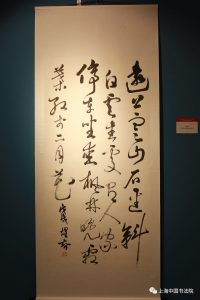 遠上寒山石逕斜
白雲生處有人家
停車坐愛楓林晚霜
葉紅于二月花
上海中国书法院